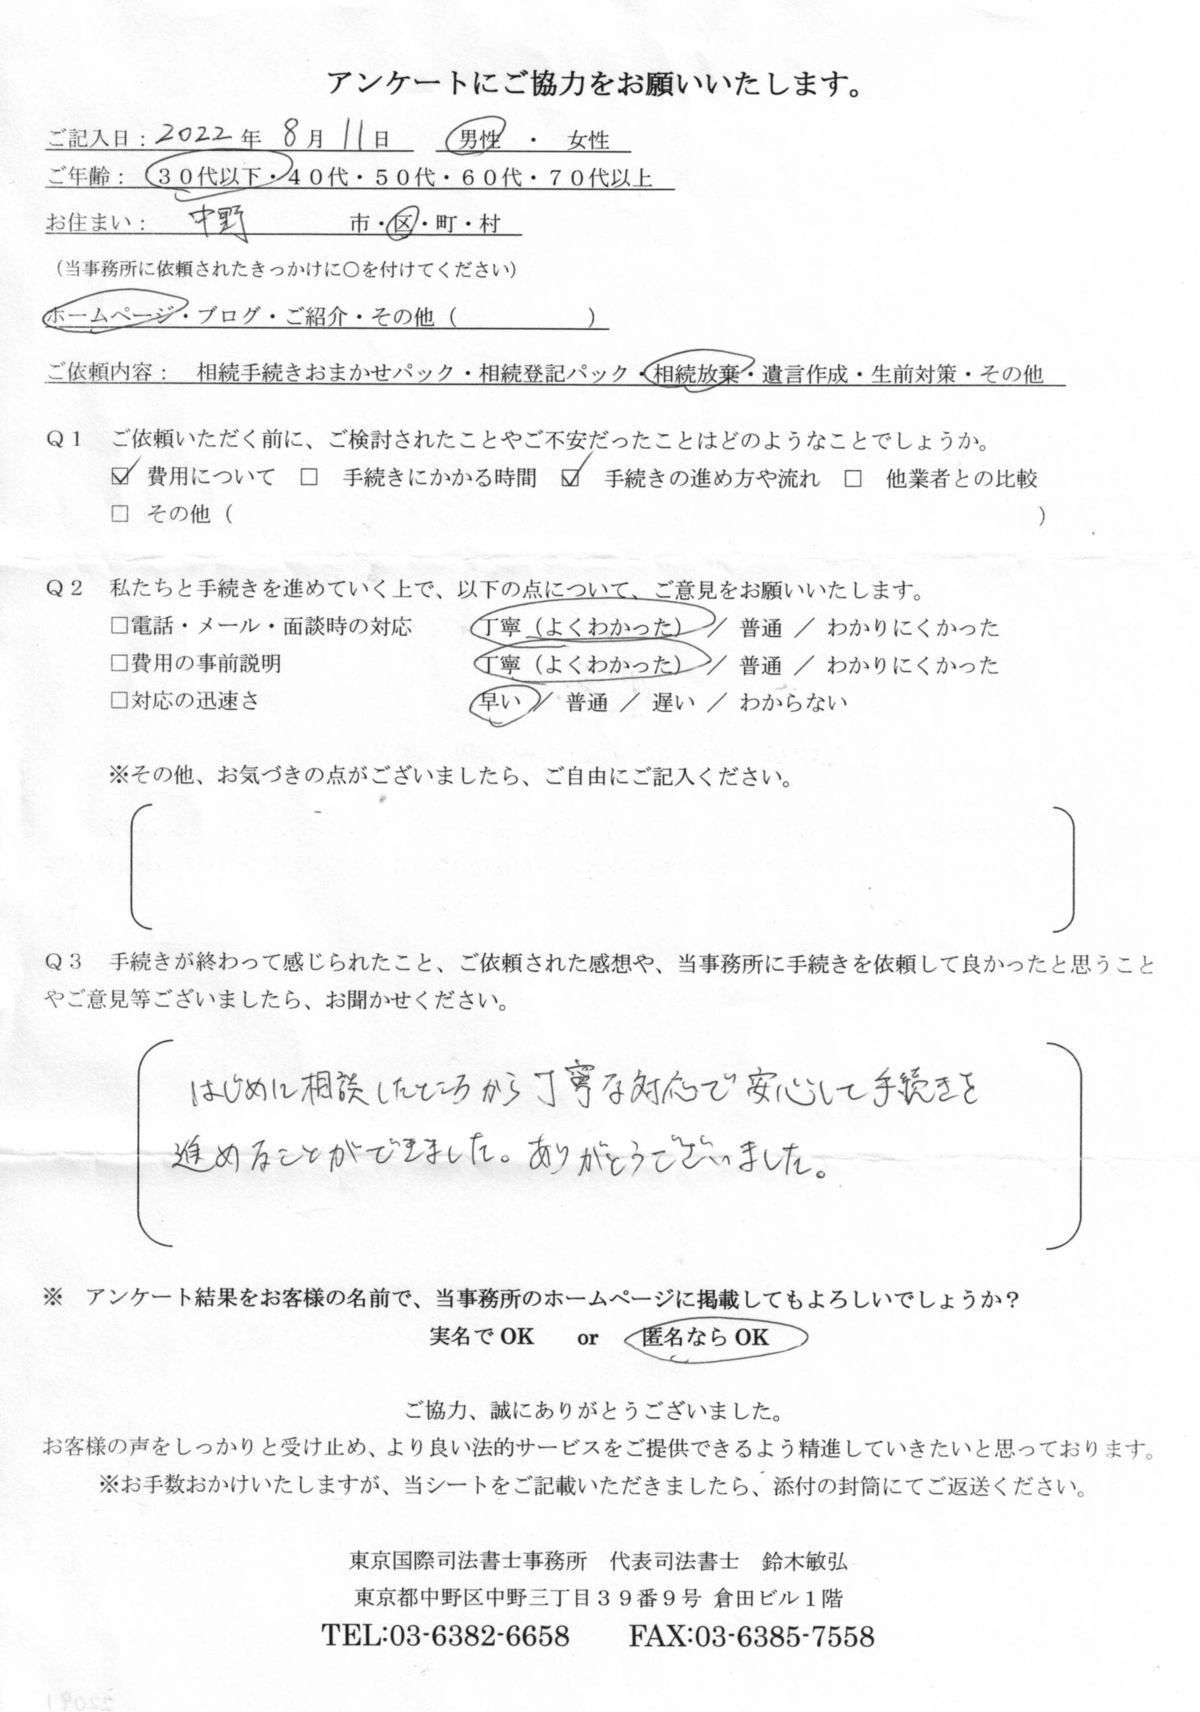 アンケートにご協力をお願いいたします。
ご記入日：2022年 8月 11日　男性 ・ 女性
ご年齢：　３０代以下・４０代・５０代・６０代・７０代以上
お住まい：　中野　市・区・町・村
（当事務所に依頼されたきっかけに○を付けてください）
ホームページ・ブログ・ご紹介・その他（　　　　　　）
ご依頼内容：　相続手続きおまかせパック・相続登記パック・相続放棄・遺言作成・生前対策・その他
Ｑ１　ご依頼いただく前に、ご検討されたことやご不安だったことはどのようなことでしょうか。
☑ 費用について　□ 手続きにかかる時間　☑ 手続きの進め方や流れ　□ 他業者との比較
□ その他（　　　　　　）
Ｑ２　私たちと手続きを進めていく上で、以下の点について、ご意見をお願いいたします。
□電話・メール・面談時の対応　丁寧（よくわかった）／ 普通 ／ わかりにくかった
□費用の事前説明　丁寧（よくわかった）／ 普通 ／ わかりにくかった
□対応の迅速さ　早い ／ 普通 ／ 遅い ／ わからない
※その他、お気づきの点がございましたら、ご自由にご記入ください。
Ｑ３　手続きが終わって感じられたこと、ご依頼された感想や、当事務所に手続きを依頼して良かったと思うこと
やご意見等ございましたら、お聞かせください。
はじめに相談したところから丁寧な対応で安心して手続きを
進めることができました。ありがとうございました。
※　アンケート結果をお客様の名前で、当事務所のホームページに掲載してもよろしいでしょうか？
実名でOK　or　匿名ならOK
ご協力、誠にありがとうございました。
お客様の声をしっかりと受け止め、より良い法的サービスをご提供できるよう精進していきたいと思っております。
※お手数おかけいたしますが、当シートをご記載いただきましたら、添付の封筒にてご返送ください。
東京国際司法書士事務所　代表司法書士　鈴木敏弘
東京都中野区中野三丁目３９番９号 倉田ビル１階
TEL:03-6382-6658　FAX:03-6385-7558